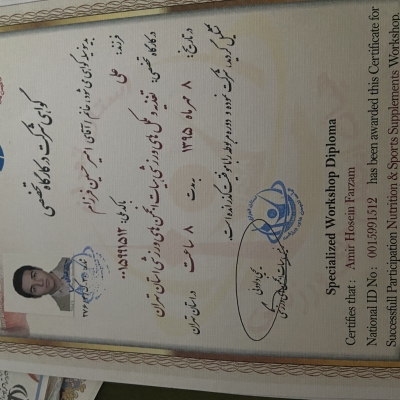 گواهی شرکت در کارگاه تخصصی
بدینوسیله گواهی می شود، خانم / آقای امیر حسین فرزام
فرزند: علی با کد ملی: ۰۰۱۵۹۹۱۵۱۲
در کارگاه تخصصی: تغذیه و مکمل های ورزشی هیات انجمن های ورزشی استان تهران
در تاریخ: ۸ مهر ماه ۱۳۹۵ بمدت ۸ ساعت در استان تهران
تشکیل گردید، شرکت نموده و دوره مربوطه را با موفقیت گذرانده است.
Specialized Workshop Diploma
Certifies that : Amir Hosein Farzam
National ID No : 0015991512 has been awarded this Certificate for
Successfull Participation Nutrition & Sports Supplements Workshop.